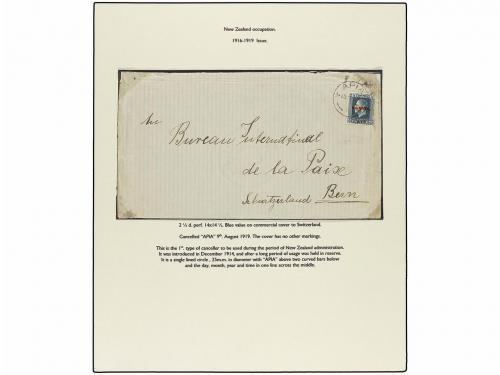 New Zealand occupation.
1916-1919 Issue.
APIA
An
Bureau International
de la Paix
Schweitzerland Bern
2 ½ d. perf. 14x14 ½. Blue value on commercial cover to Switzerland.
Cancelled "APIA" 9th. August 1919. The cover has no other markings.
This is the 1st. type of canceller to be used during the period of New Zealand administration.
It was introduced in December 1914, and after a long period of usage was held in reserve.
It is a single lined circle, 23mm. in diameter with "APIA" above two curved bars below
and the day, month, year and time in one line across the middle.